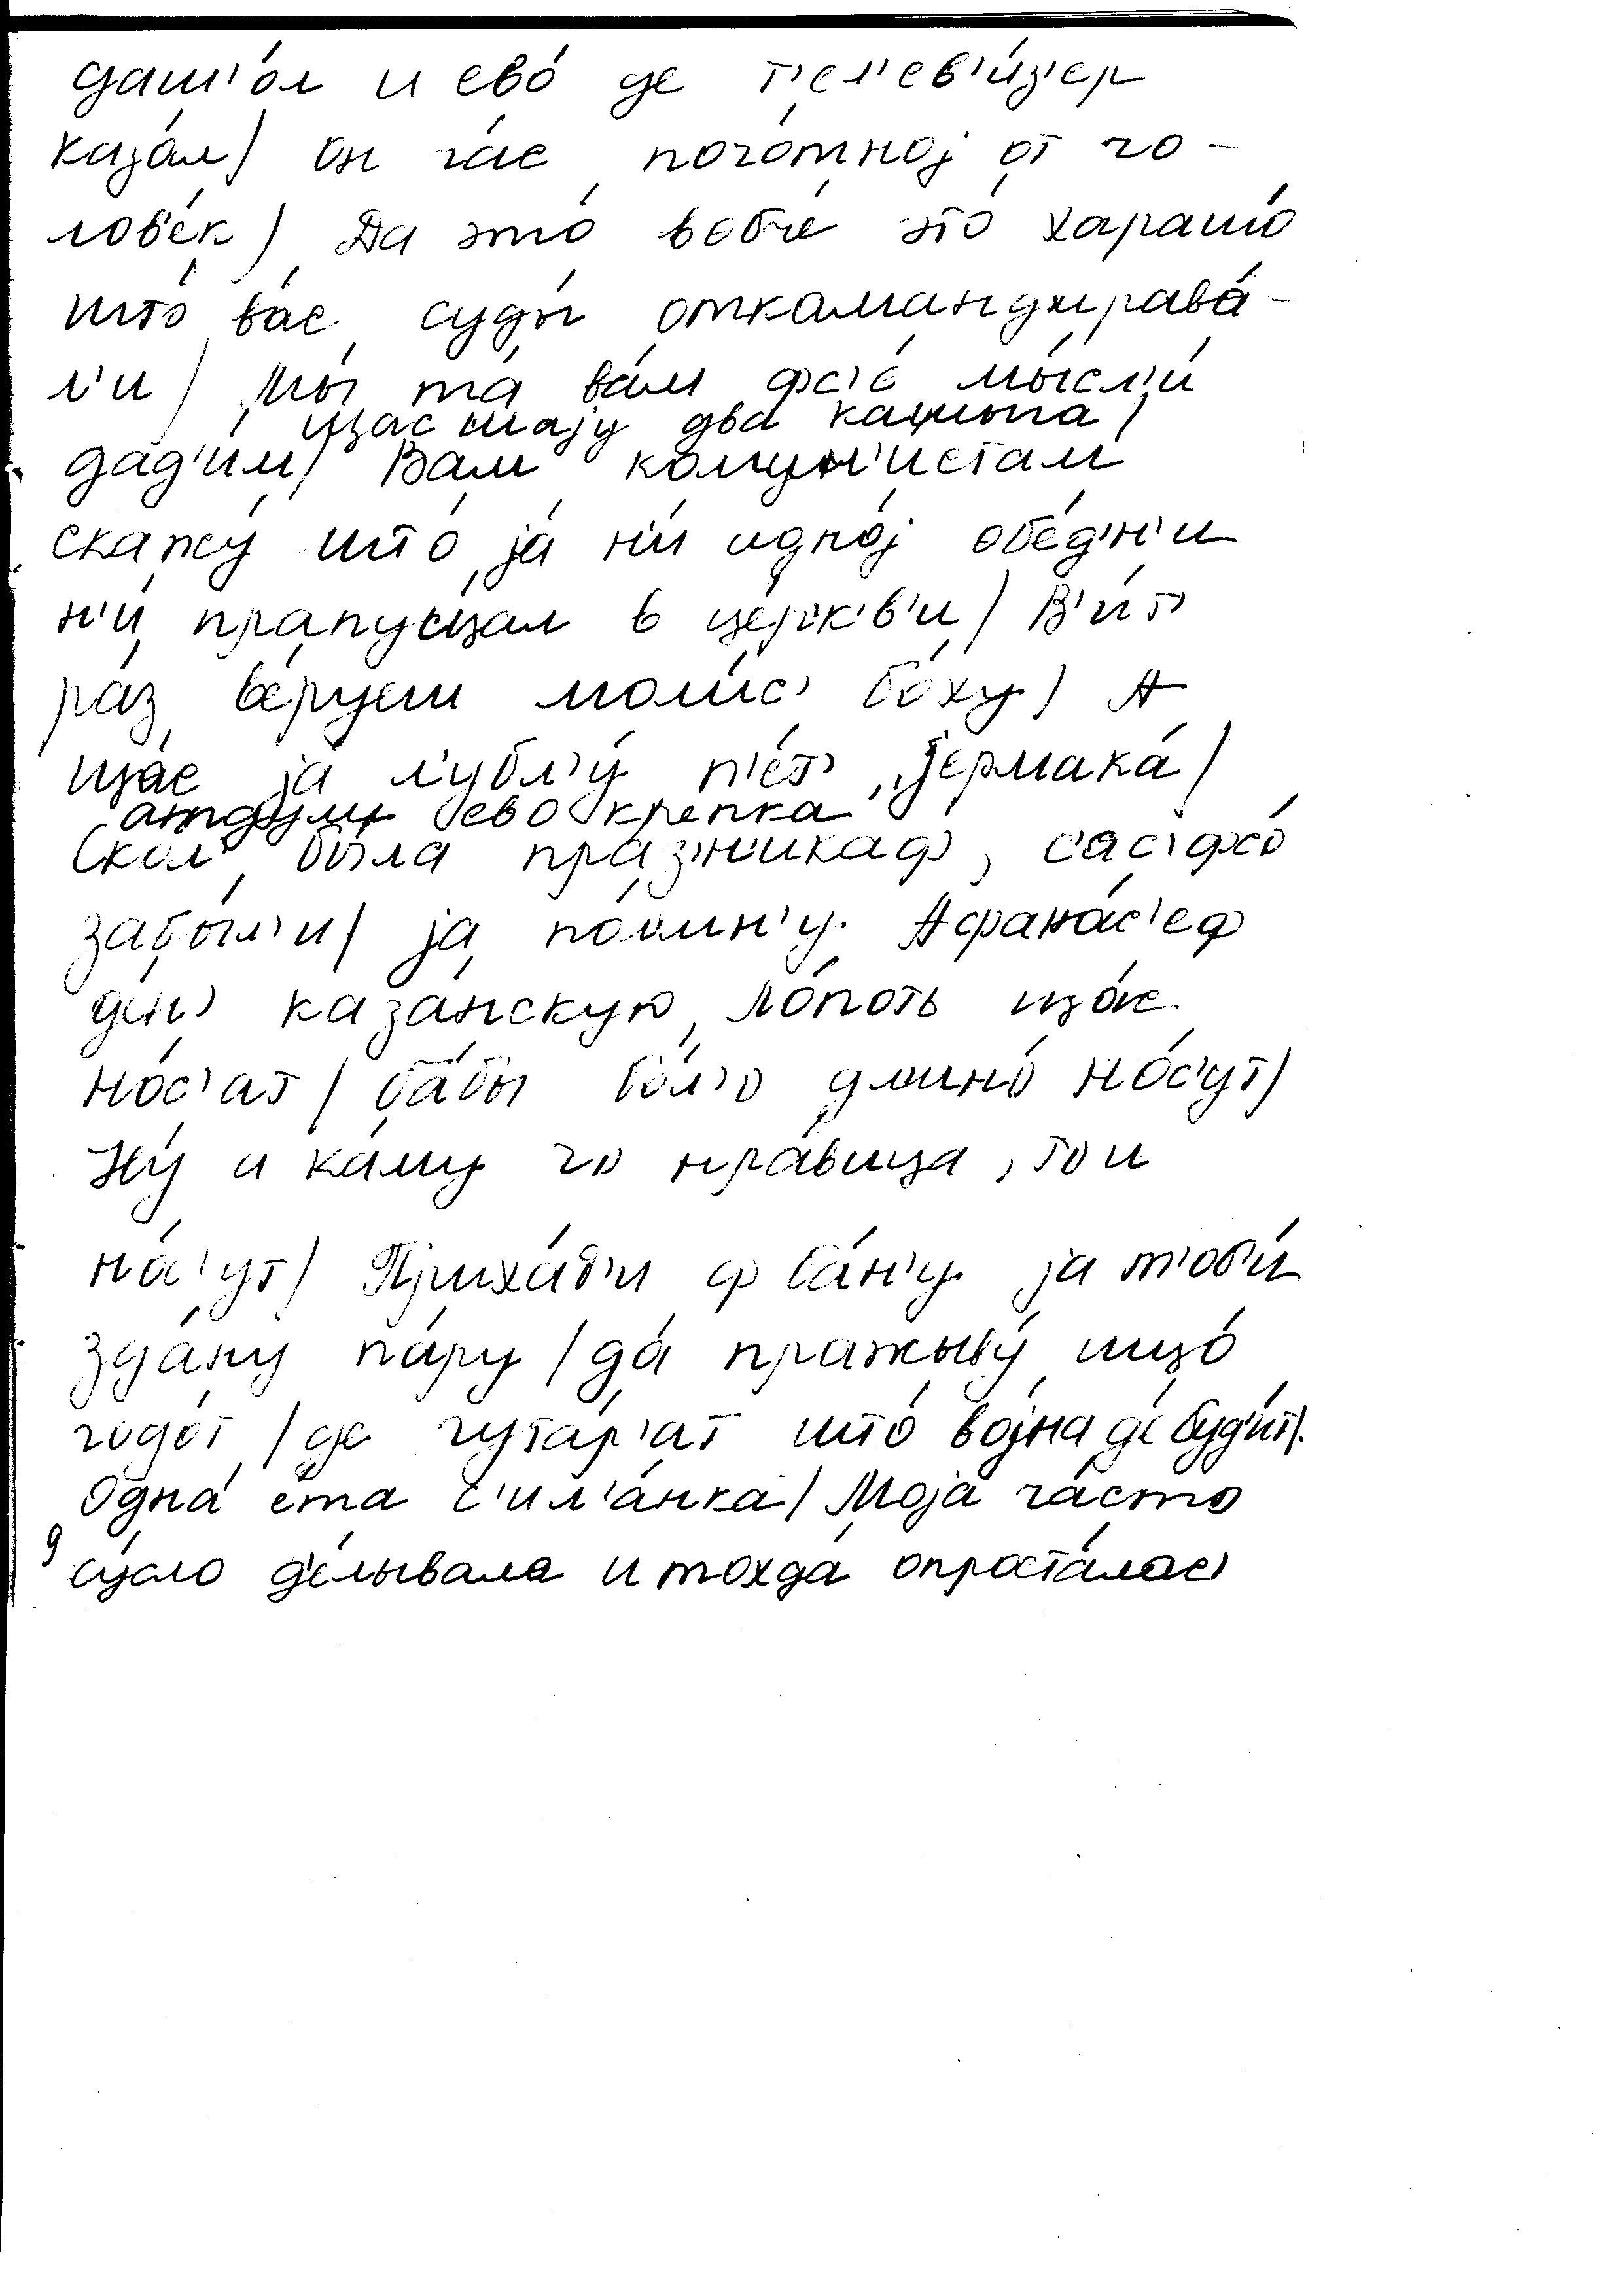 даш'о́л и ево́ де т'ел'ев'и́з'ер
каза́л/ он ча́с почо́тној от чо-
лов'е́к/ Да это́ вобче́ это́ харашо́
што́ ва́с суды́ откамандирава́-
л'и/ Мы́ та́ ва́м фс'е́ мы́сл'и
щас шају два кацыпа/
дад'и́м/ Вам комун'истам
скажу́ што́ ја́ н'и́ одно́ј обе́дн'и
н'и́ прапущал в це́рк'в'и/ В'и́т'
ра́з ве́руеш моли́с' бо́ху/ А
ща́с ја́ л'убл'у́ п'е́т' „Јермака́/
атдули ево крепка
Скол' бы́ла пра́з'н'икаф, с'ас' фс'о́
забы́л'и/ ја́ по́мн'у Афана́с'еф
д'ен' каза́нскую, Ло́поть ща́с
но́с'ат/ ба́бы бо́л'о длино́ но́с'ут/
Ну́ и ка́му чо нра́вица, то и
но́с'ут/ Приха́д'и ф ба́н'у ја т'об'и́
зда́ну па́ру/ да́ пражыву́ ищо́
годо́т/ де гута́р'ат што́ војна́ де бу́д'ит/.
Одна́ е́та с'ил'а́нка/ Моја́ ча́сто
су́сло де́лывала и тохда́ опроста́лас'